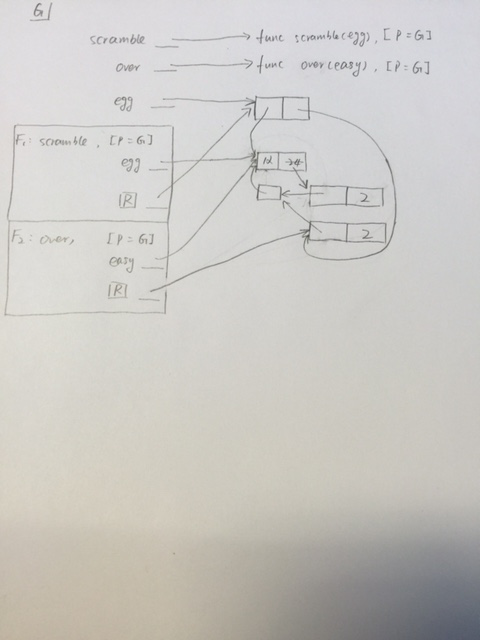 G
scramble → func scramble(egg), [P=G]
over → func over(easy), [P=G]
egg
F1: scramble, [P=G]
egg
12
R
2
F2: over, [P=G]
2
easy
R